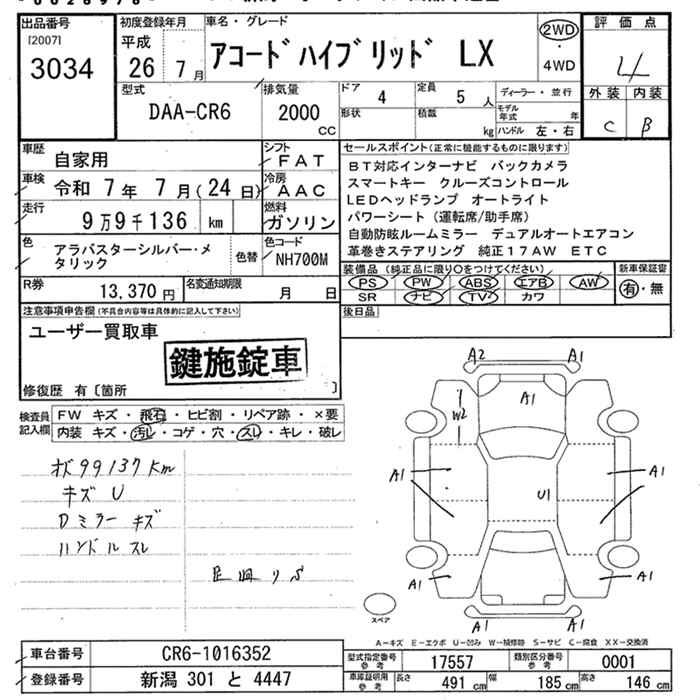 出品番号
[2007]
3034
初度登録年月
平成
26 7 月
車名・グレード
アコードハイブリッド LX
2WD
・
4WD
評価点
4
外装 内装
C B
型式
DAA-CR6
排気量
2000
CC
ドア
4
定員
5 人
ディーラー・並行
形状
積載
kg
モデル年式 年
ハンドル 左・右
車歴
自家用
シフト
FAT
車検
令和 7年 7月(24日)
冷房
AAC
走行
9万9千136 km
燃料
ガソリン
色
アラバスターシルバー・メタリック
色替
色コード
NH700M
セールスポイント(正常に機能するものに限ります)
BT対応インターナビ バックカメラ
スマートキー クルーズコントロール
LEDヘッドランプ オートライト
パワーシート(運転席/助手席)
自動防眩ルームミラー デュアルオートエアコン
革巻きステアリング 純正17AW ETC
R券
13,370 円
名変通知期限
月 日
装備品(純正品に限り○をつけてください)
PS PW ABS エアB AW
SR ナビ TV カワ
新車保証書
有・無
後日品
注意事項申告欄(不具合内容等は具体的に記入して下さい)
ユーザー買取車
鍵施錠車
修復歴 有〔箇所 〕
検査員
記入欄
FW キズ・飛石・ヒビ割・リペア跡・×要
内装 キズ・汚レ・コゲ・穴・スレ・キレ・破レ
99137Km
キズ U
Dミラー キズ
ハンドル スレ
A2 A1
W2
A1
A1
A1
U1
A1
A1
A1
A1
スペア
A-キズ E-エクボ U-凹み W-補修跡 S-サビ C-腐食 XX-交換済
車台番号
CR6-1016352
登録番号
新潟 301 と 4447
型式指定番号
参考
17557
類別区分番号
参考
0001
車庫証明用
参考
長さ 491 cm
幅 185 cm
高さ 146 cm